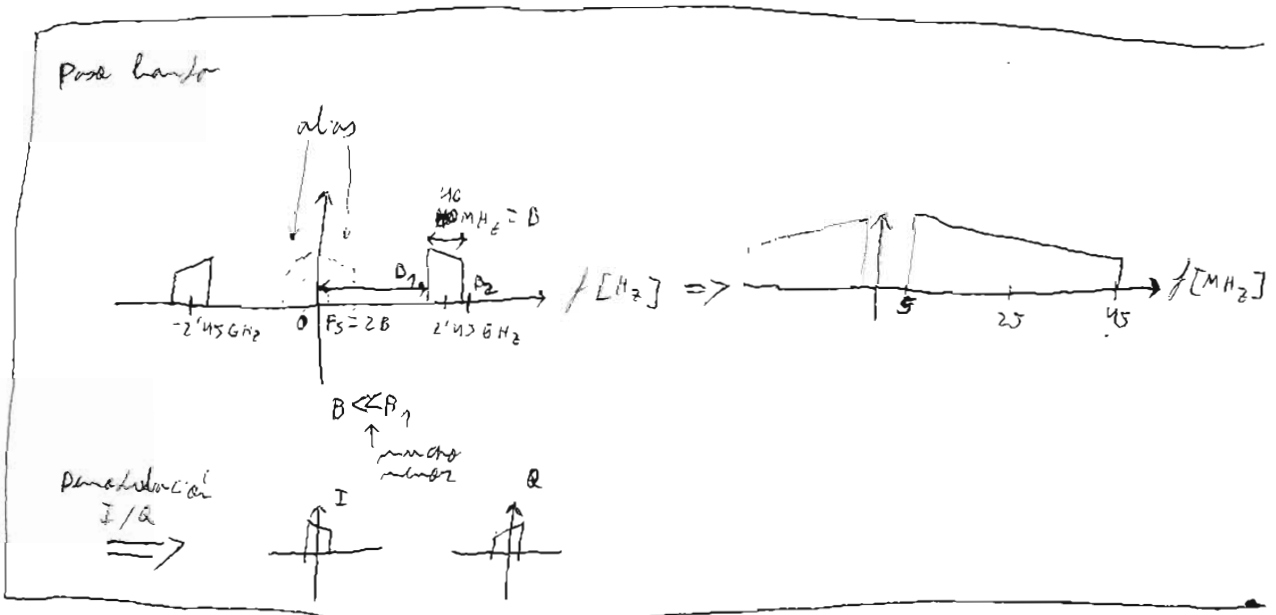 Paso banda
alias
40
MHz = B
B1
B2
f [Hz] =>
f [MHz]
-2'45 GHz
0
Fs = 2B
2'45 GHz
5
25
45
B << B1
mucho
menor
Demodulación
I/Q
I
Q